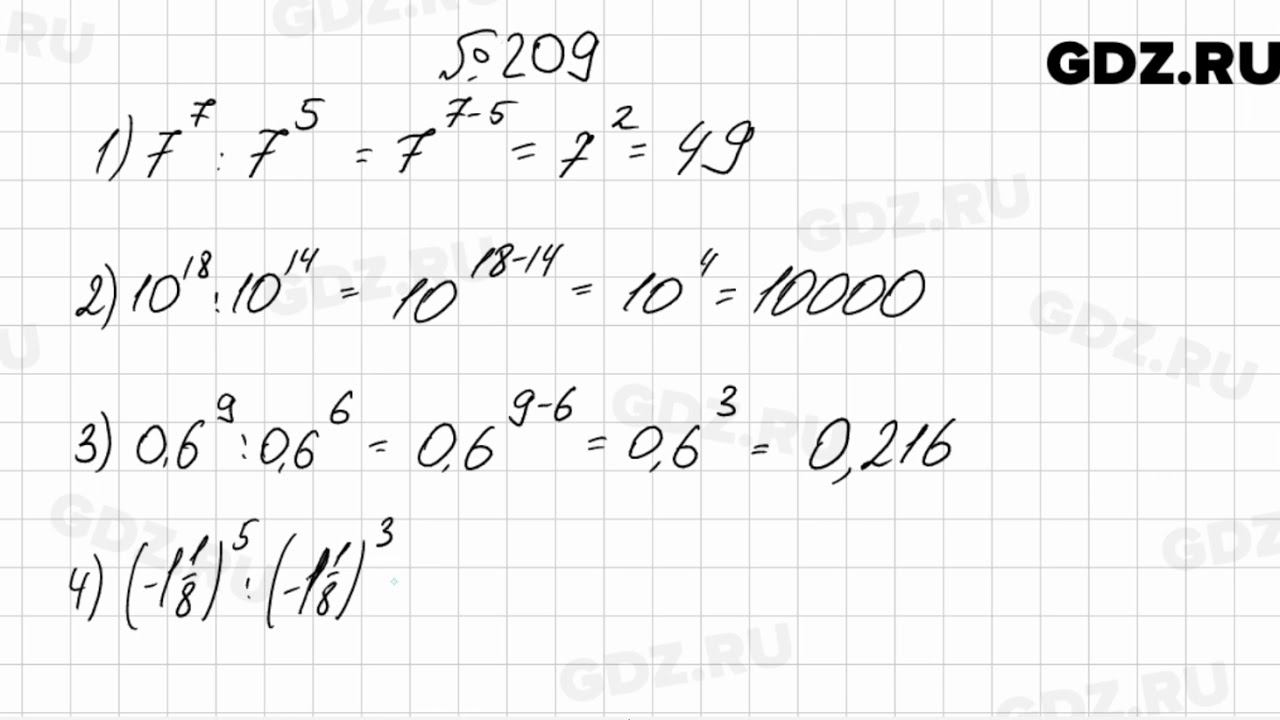 № 209
GDZ.RU
1) 7⁷ : 7⁵ = 7⁷⁻⁵ = 7² = 49
2) 10¹⁸ : 10¹⁴ = 10¹⁸⁻¹⁴ = 10⁴ = 10000
3) 0,6⁹ : 0,6⁶ = 0,6⁹⁻⁶ = 0,6³ = 0,216
4) (-1 1/8)⁵ : (-1 1/8)³